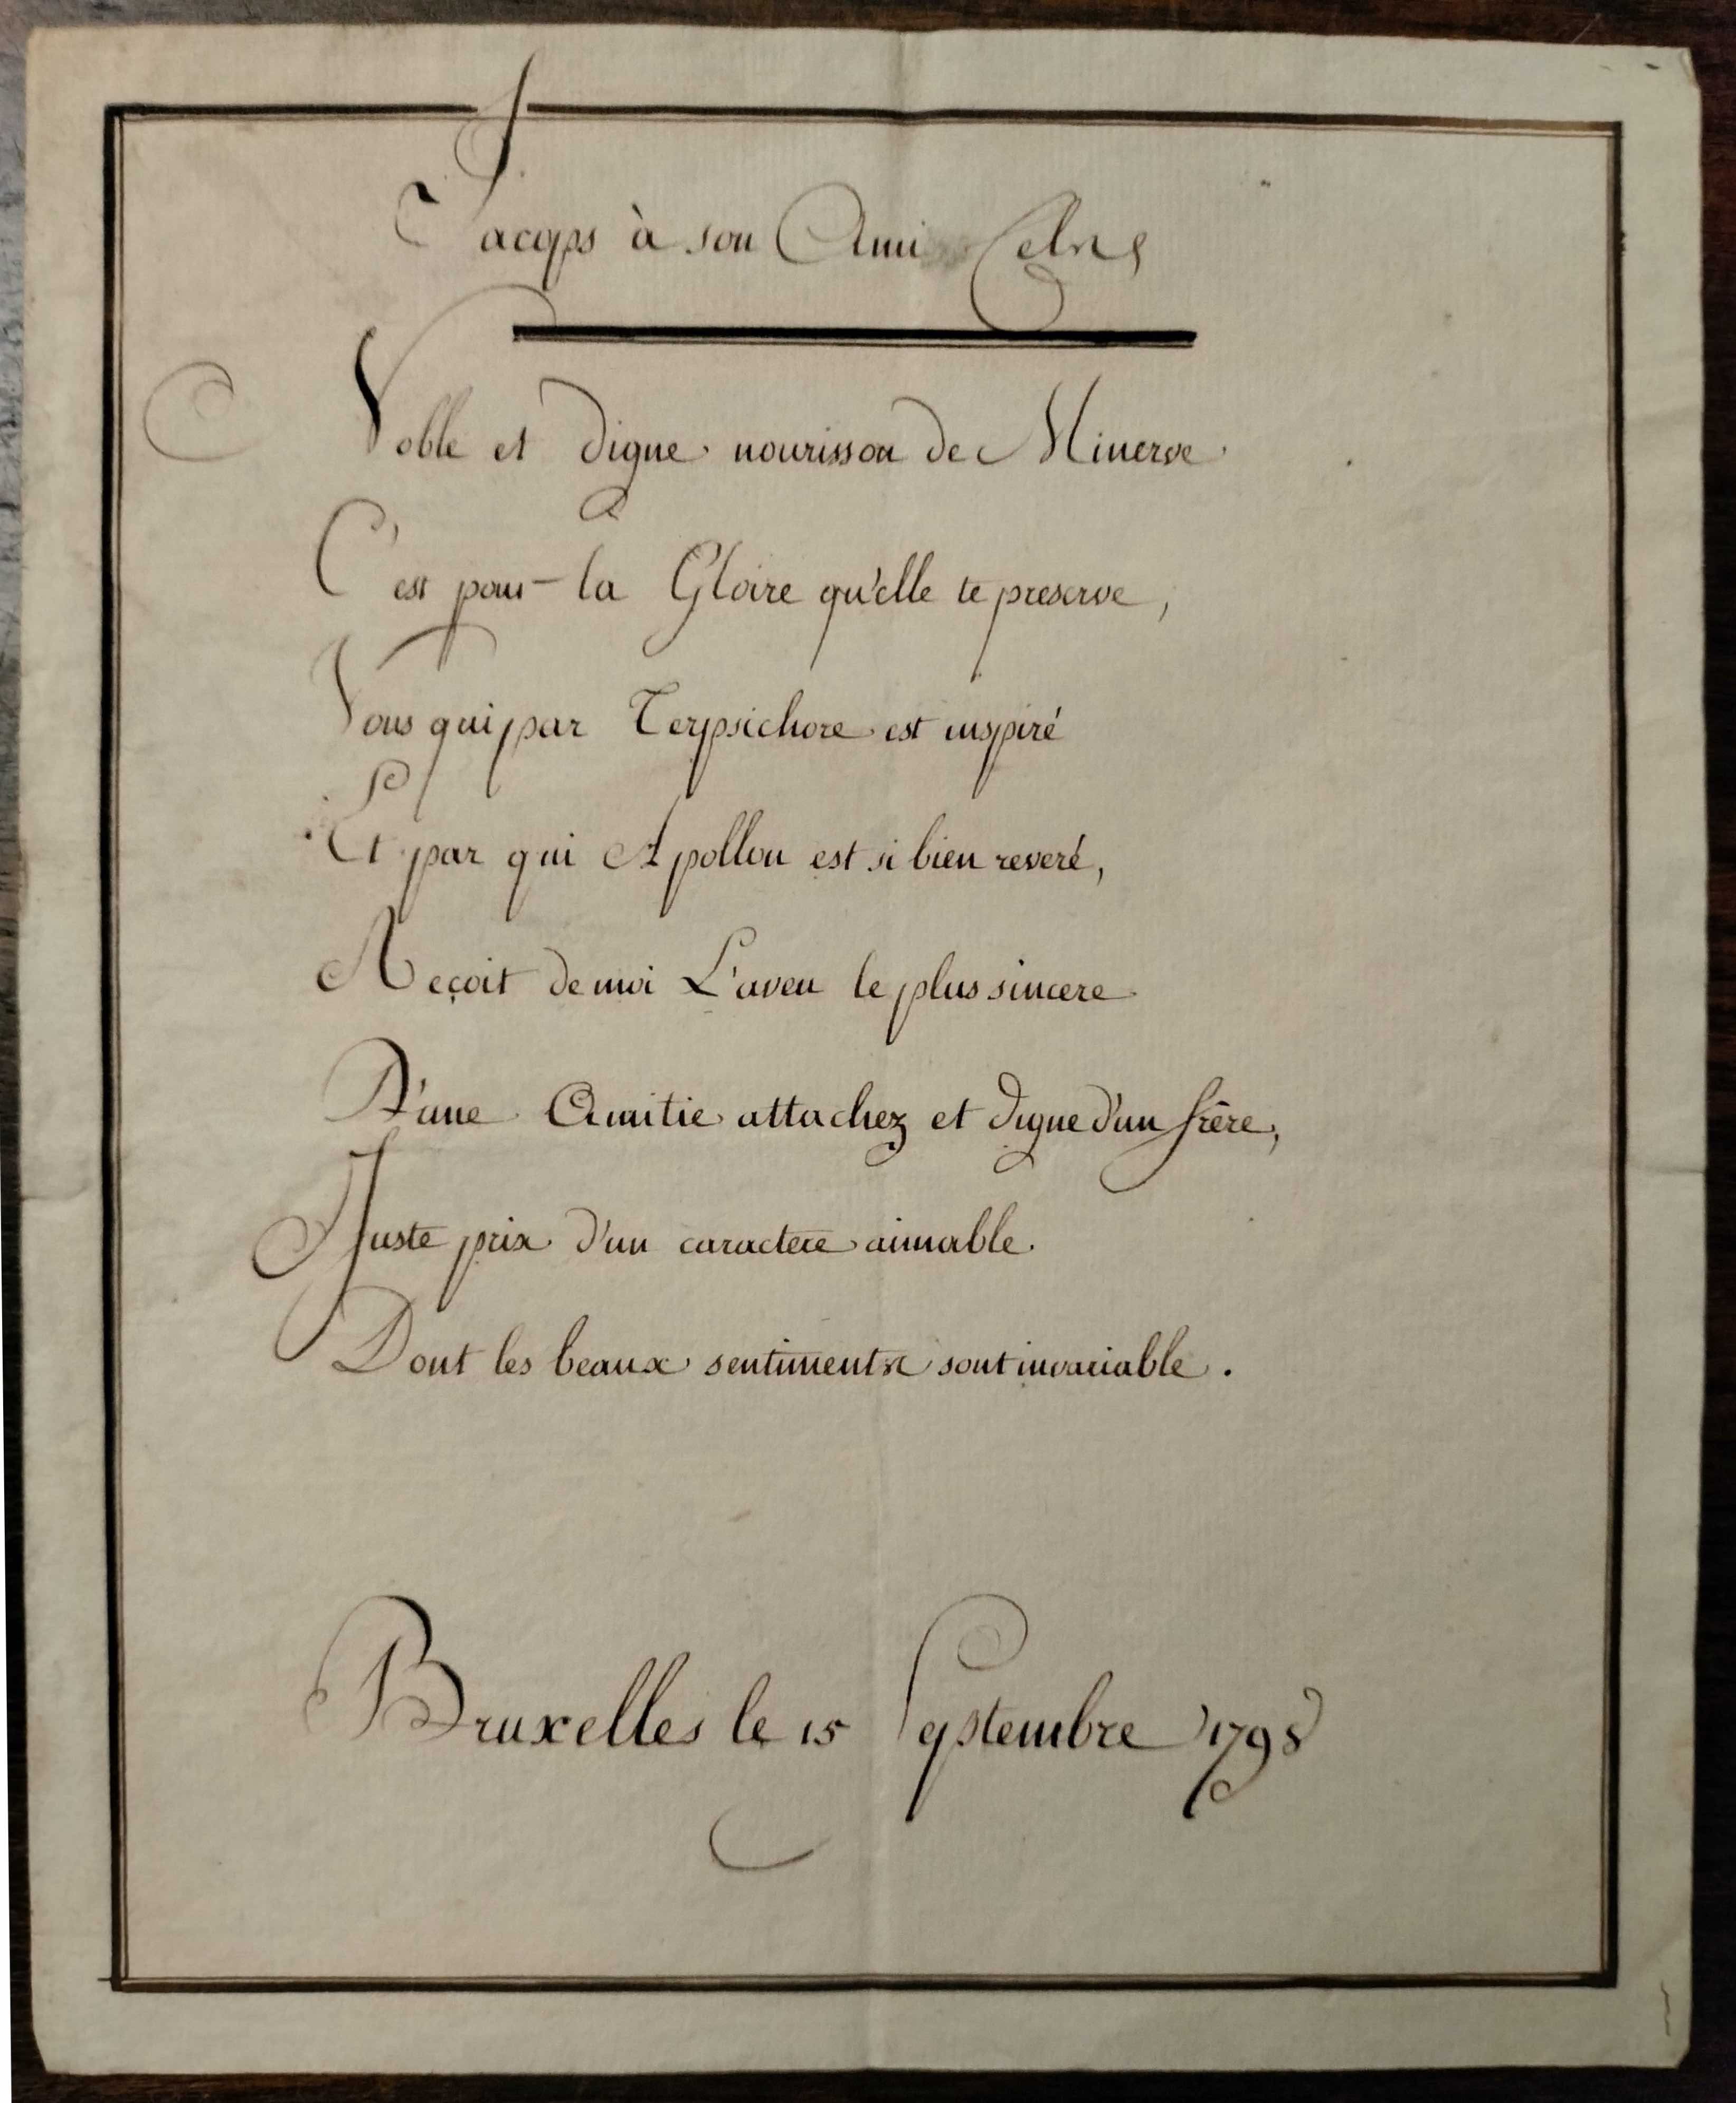 Jacops à son Ami
Noble et digne nourisson de Minerve
C'est pour la Gloire qu'elle te preserve,
Vous qui par Terpsichore est inspiré
Et par qui Apollon est si bien reveré,
Reçoit de moi L'aveu le plus sincere
D'une Amitie attachez et digne d'un frère,
Juste prix d'un caractere aimable.
Dont les beaux sentiments sont invariable.
Bruxelles le 15 Septembre 1798